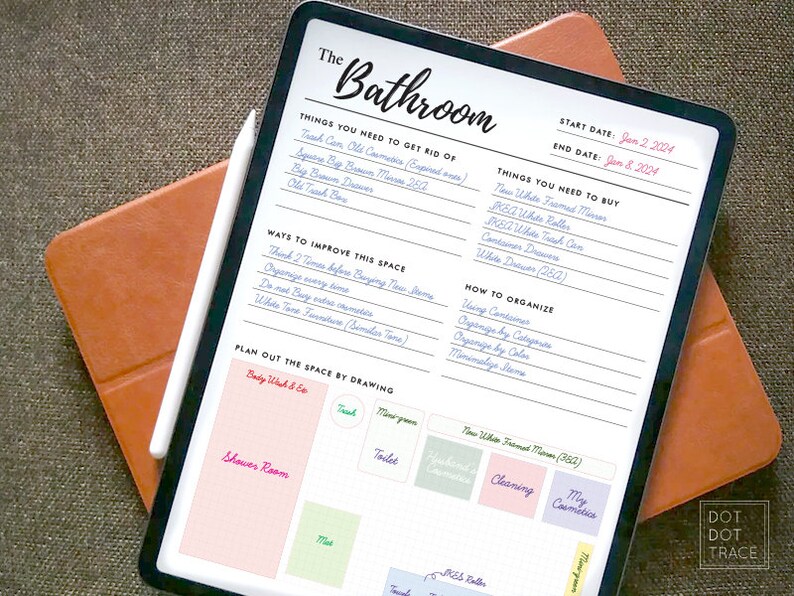 The
Bathroom
START DATE: Jan 2, 2024
END DATE: Jan 8, 2024
THINGS YOU NEED TO GET RID OF
Trash Can, Old Cosmetics (Expired ones)
Square Big Brown Mirror 2EA
Big Brown Drawer
Old Trash Box
THINGS YOU NEED TO BUY
New White Framed Mirror
IKEA White Roller
IKEA White Trash Can
Container Drawers
White Drawer (2EA)
WAYS TO IMPROVE THIS SPACE
Think 2 Times before Buying New Items
Organize every time
Do not Buy extra cosmetics
White Tone Furniture (Similar Tone)
HOW TO ORGANIZE
Using Container
Organize by Categories
Organize by Color
Minimalize Items
PLAN OUT THE SPACE BY DRAWING
Body Wash & Ex
Shower Room
Trash
Mini-green
Toilet
New White Framed Mirror (3EA)
Husband's
Cosmetics
Cleaning
My
Cosmetics
Mat
IKEA Roller
Towels
Mini-green
DOT
DOT
TRACE